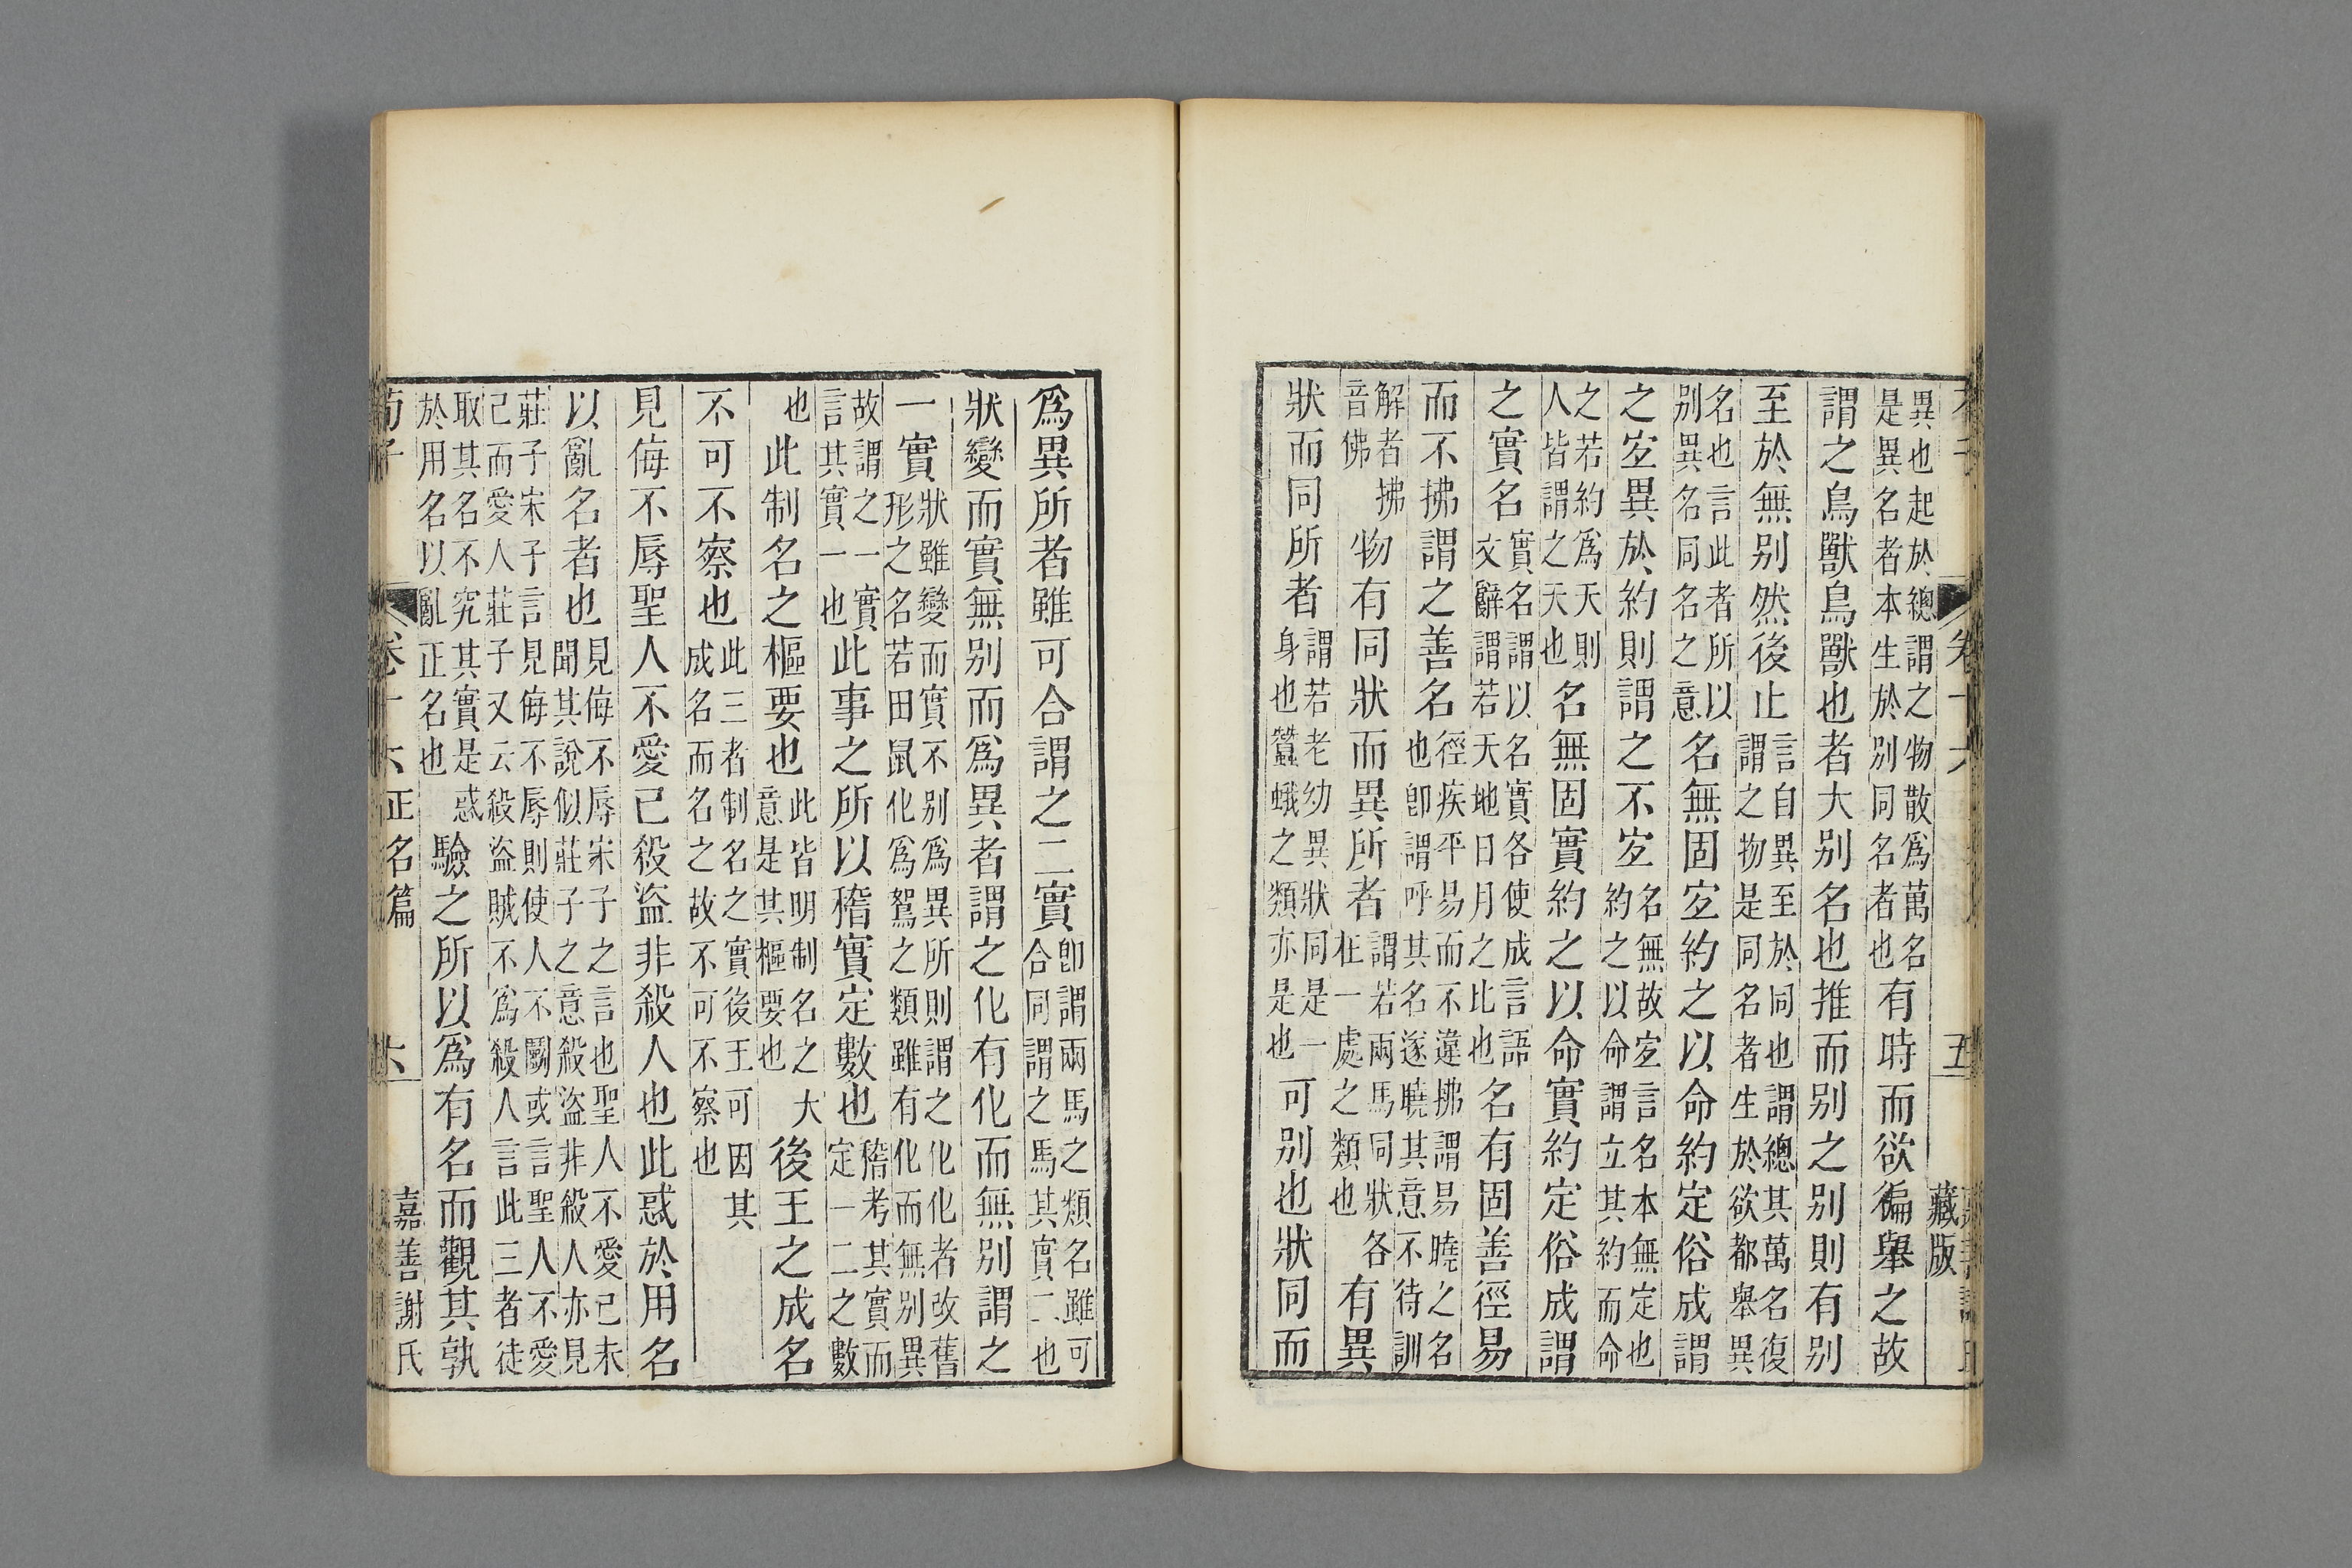 卷十六 五 藏版
異也起於總謂之物散爲萬名是異名者本生於别同名者也有時而欲徧舉之故
謂之鳥獸鳥獸也者大别名也推而别之别則有别
至於無别然後止言自異至於同也謂總其萬名復謂之物是同名者生於欲都舉異
名也言此者所以别異名同名之意名無固宐約之以命約定俗成謂
之宐異於約則謂之不宐名無故宐言名本無定也約之以命謂立其約而命
之若約爲天則人皆謂之天也名無固實約之以命實約定俗成謂
之實名實名謂以名實各使成言語文辭謂若天地日月之比也名有固善徑易
而不拂謂之善名徑疾平易而不違拂謂易曉之名也卽謂呼其名遂曉其意不待訓
解者拂音佛物有同狀而異所者謂若兩馬同狀各在一處之類也有異
狀而同所者謂若老幼異狀同是一身也蠶蛾之類亦是也可别也狀同而
爲異所者雖可合謂之二實卽謂兩馬之類名雖可合同謂之馬其實二也
狀變而實無别而爲異者謂之化有化而無别謂之
一實狀雖變而實不别爲異所則謂之化化者改舊形之名若田鼠化爲鴽之類雖有化而無别異
故謂之一實言其實一也此事之所以稽實定數也稽考其實而定一二之數
也此制名之樞要也此皆明制名之大意是其樞要也後王之成名
不可不察也此三者制名之實後王可因其成名而名之故不可不察也
見侮不辱聖人不愛己殺盜非殺人也此惑於用名
以亂名者也見侮不辱宋子之言也聖人不愛己未聞其說似莊子之意殺盜非殺人亦見
莊子宋子言見侮不辱則使人不鬭或言聖人不愛己而愛人莊子又云殺盜賊不爲殺人言此三者徒
取其名不究其實是惑於用名以亂正名也驗之所以爲有名而觀其孰
荀子 卷十六 正名篇 六 嘉善謝氏